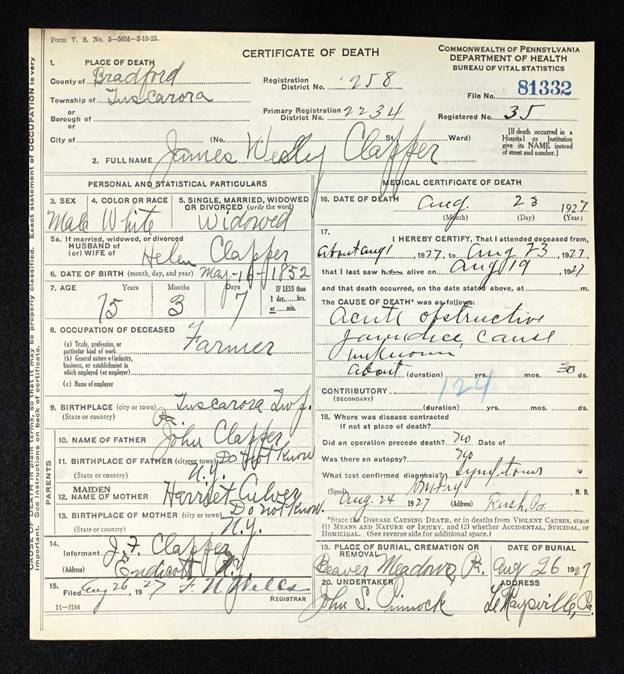 Form V. S. No. 5—50M—3-10-25.
CERTIFICATE OF DEATH
COMMONWEALTH OF PENNSYLVANIA
DEPARTMENT OF HEALTH
BUREAU OF VITAL STATISTICS
1. PLACE OF DEATH
County of Bradford
Registration District No. 258
File No. 81332
Township of Tuscarora
or
Borough of
Primary Registration District No. 2234
Registered No. 35
or
City of (No. St. Ward)
[If death occurred in a Hospital or Institution give its NAME instead of street and number.]
2. FULL NAME James Wesley Clapper
PERSONAL AND STATISTICAL PARTICULARS
3. SEX Male
4. COLOR OR RACE White
5. SINGLE, MARRIED, WIDOWED OR DIVORCED (write the word) Widowed
5a. If married, widowed, or divorced
HUSBAND of
(or) WIFE of Helen Clapper
6. DATE OF BIRTH (month, day, and year) May-16-1852
7. AGE Years 75 Months 3 Days 7
IF LESS than 1 day,....hrs. or....min.
8. OCCUPATION OF DECEASED Farmer
(a) Trade, profession, or particular kind of work
(b) General nature of industry, business, or establishment in which employed (or employer)
(c) Name of employer
9. BIRTHPLACE (city or town) Tuscarora Twp.
(State or country) Pa.
PARENTS
10. NAME OF FATHER John Clapper
11. BIRTHPLACE OF FATHER (city or town) Do Not Know
(State or country) N.Y.
12. MAIDEN NAME OF MOTHER Harriet Culver
13. BIRTHPLACE OF MOTHER (city or town) Do not Know.
(State or country) N.Y.
14. Informant J. F. Clapper
(Address) Endicott N.Y.
15. Filed Aug 26, 1927 F. N. Wells
REGISTRAR
11—3184
MEDICAL CERTIFICATE OF DEATH
16. DATE OF DEATH Aug. 23 1927
(Month) (Day) (Year)
17. I HEREBY CERTIFY, That I attended deceased from
About Aug 1 1927, to Aug 23, 1927
that I last saw him alive on Aug 19 1927
and that death occurred, on the date stated above, at m.
The CAUSE OF DEATH* was as follows:
Acute obstructive
jaundice, cause
unknown
About (duration) yrs. mos. 30 ds.
CONTRIBUTORY 124
(SECONDARY)
(duration) yrs. mos. ds.
18. Where was disease contracted
if not at place of death?
Did an operation precede death? No Date of
Was there an autopsy? No
What test confirmed diagnosis? Symptoms
(Signed) M. D.
Aug. 24 1927 (Address) Rush, Pa.
*State the DISEASE CAUSING DEATH, or in deaths from VIOLENT CAUSES, state (1) MEANS AND NATURE OF INJURY, and (2) whether ACCIDENTAL, SUICIDAL, or HOMICIDAL. (See reverse side for additional space.)
19. PLACE OF BURIAL, CREMATION OR REMOVAL
DATE OF BURIAL
Beaver Meadows, Pa. Aug 26 1927
20. UNDERTAKER
ADDRESS
John S. Pinnock LeRaysville, Pa.